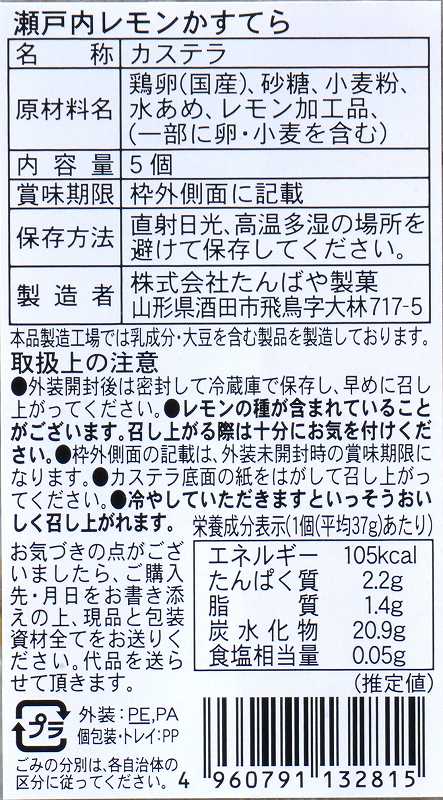 瀬戸内レモンかすてら
名称 カステラ
原材料名 鶏卵(国産)、砂糖、小麦粉、
水あめ、レモン加工品、
(一部に卵・小麦を含む)
内容量 5個
賞味期限 枠外側面に記載
保存方法 直射日光、高温多湿の場所を
避けて保存してください。
製造者 株式会社たんばや製菓
山形県酒田市飛鳥字大林717-5
本品製造工場では乳成分・大豆を含む製品を製造しております。
取扱上の注意
●外装開封後は密封して冷蔵庫で保存し、早めに召し
上がってください。●レモンの種が含まれていること
がございます。召し上がる際は十分にお気を付けくだ
さい。●枠外側面の記載は、外装未開封時の賞味期限に
なります。●カステラ底面の紙をはがして召し上がっ
てください。●冷やしていただきますといっそうおい
しく召し上がれます。
栄養成分表示(1個(平均37g)あたり)
エネルギー 105kcal
たんぱく質 2.2g
脂質 1.4g
炭水化物 20.9g
食塩相当量 0.05g
(推定値)
お気づきの点がござ
いましたら、ご購入
先・月日をお書き添
えの上、現品と包装
資材全てをお送りく
ださい。代品を送ら
せて頂きます。
プラ
外装:PE,PA
個包装・トレイ:PP
ごみの分別は、各自治体の
区分に従ってください。
4 960791 132815